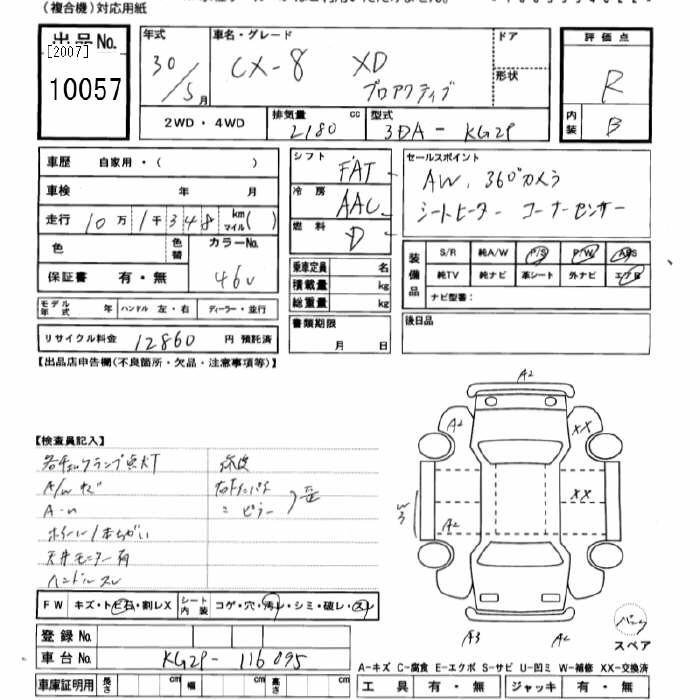 (複合機)対応用紙
出品No.
[2007]
10057
年式
30/5月
車名・グレード
CX-8 XD
プロアクティブ
ドア
形状
評価点
R
内装
B
2WD・4WD
排気量
2180 cc
型式
3DA-KG2P
車歴 自家用・( )
車検 年 月
走行 10万1千348 km マイル( )
色
色替
カラーNo.
46V
保証書 有・無
モデル年式 年 ハンドル 左・右 ディーラー・並行
リサイクル料金 12860 円 預託済
シフト
FAT
冷房
AAC
燃料
D
乗車定員 名
積載量 kg
総重量 kg
書類期限
月 日
セールスポイント
AW. 360°カメラ
シートヒーター コーナーセンサー
装備品
S/R 純A/W P/S P/W ABS
純TV 純ナビ 革シート 外ナビ エアB
ナビ型番:
後日品
【出品店申告欄(不良箇所・欠品・注意事項等)】
【検査員記入】
各チェックランプ点灯
A/Wキズ
ホイール1本ちがい
天井モニター有
ハンドルスレ
A2
A2
XX
XX
W3
A2
A3
A2
パンク
スペア
FW キズ・トビ石・割レX シート内装 コゲ・穴・汚レ・シミ・破レ・スレ
登録No.
車台No. KG2P-116095
車庫証明用 長さ cm 幅 cm 高さ cm
A-キズ C-腐食 E-エクボ S-サビ U-凹ミ W-補修 XX-交換済
工具 有・無 ジャッキ 有・無